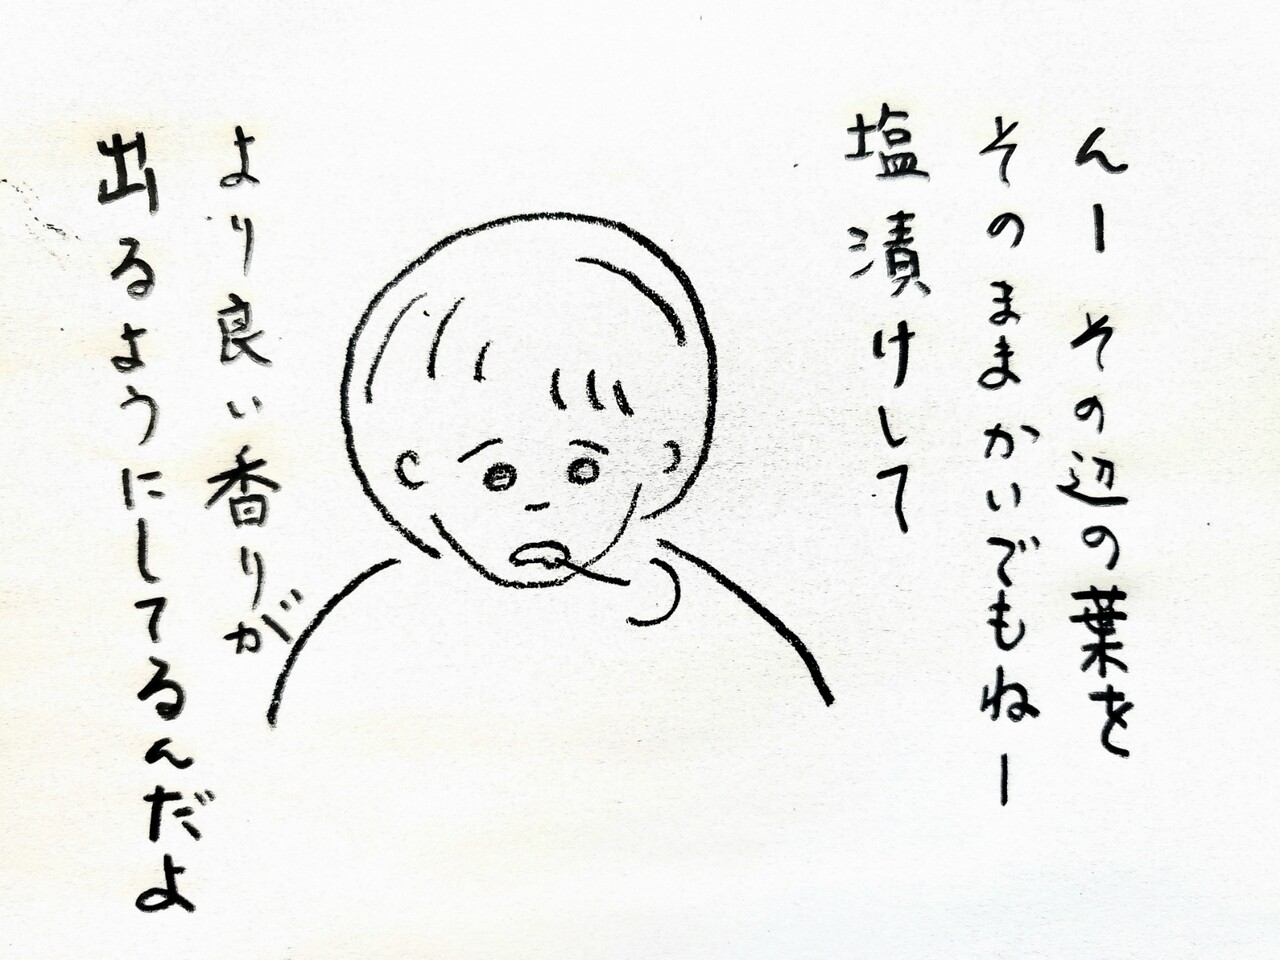 んー その辺の葉を
そのままかいでもねー
塩漬けして
より良い香りが
出るようにしてるんだよ